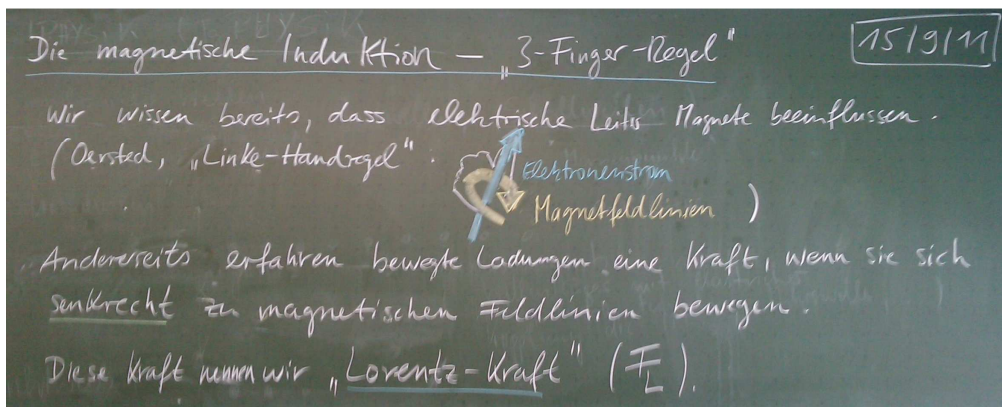 Die magnetische Induktion – „3-Finger-Regel"
15/9/11
Wir wissen bereits, dass elektrische Leiter Magnete beeinflussen.
(Oersted, „Linke-Handregel".
Elektronenstrom
Magnetfeldlinien )
Andererseits erfahren bewegte Ladungen eine Kraft, wenn sie sich
senkrecht zu magnetischen Feldlinien bewegen.
Diese Kraft nennen wir „Lorentz-Kraft" (F_L).